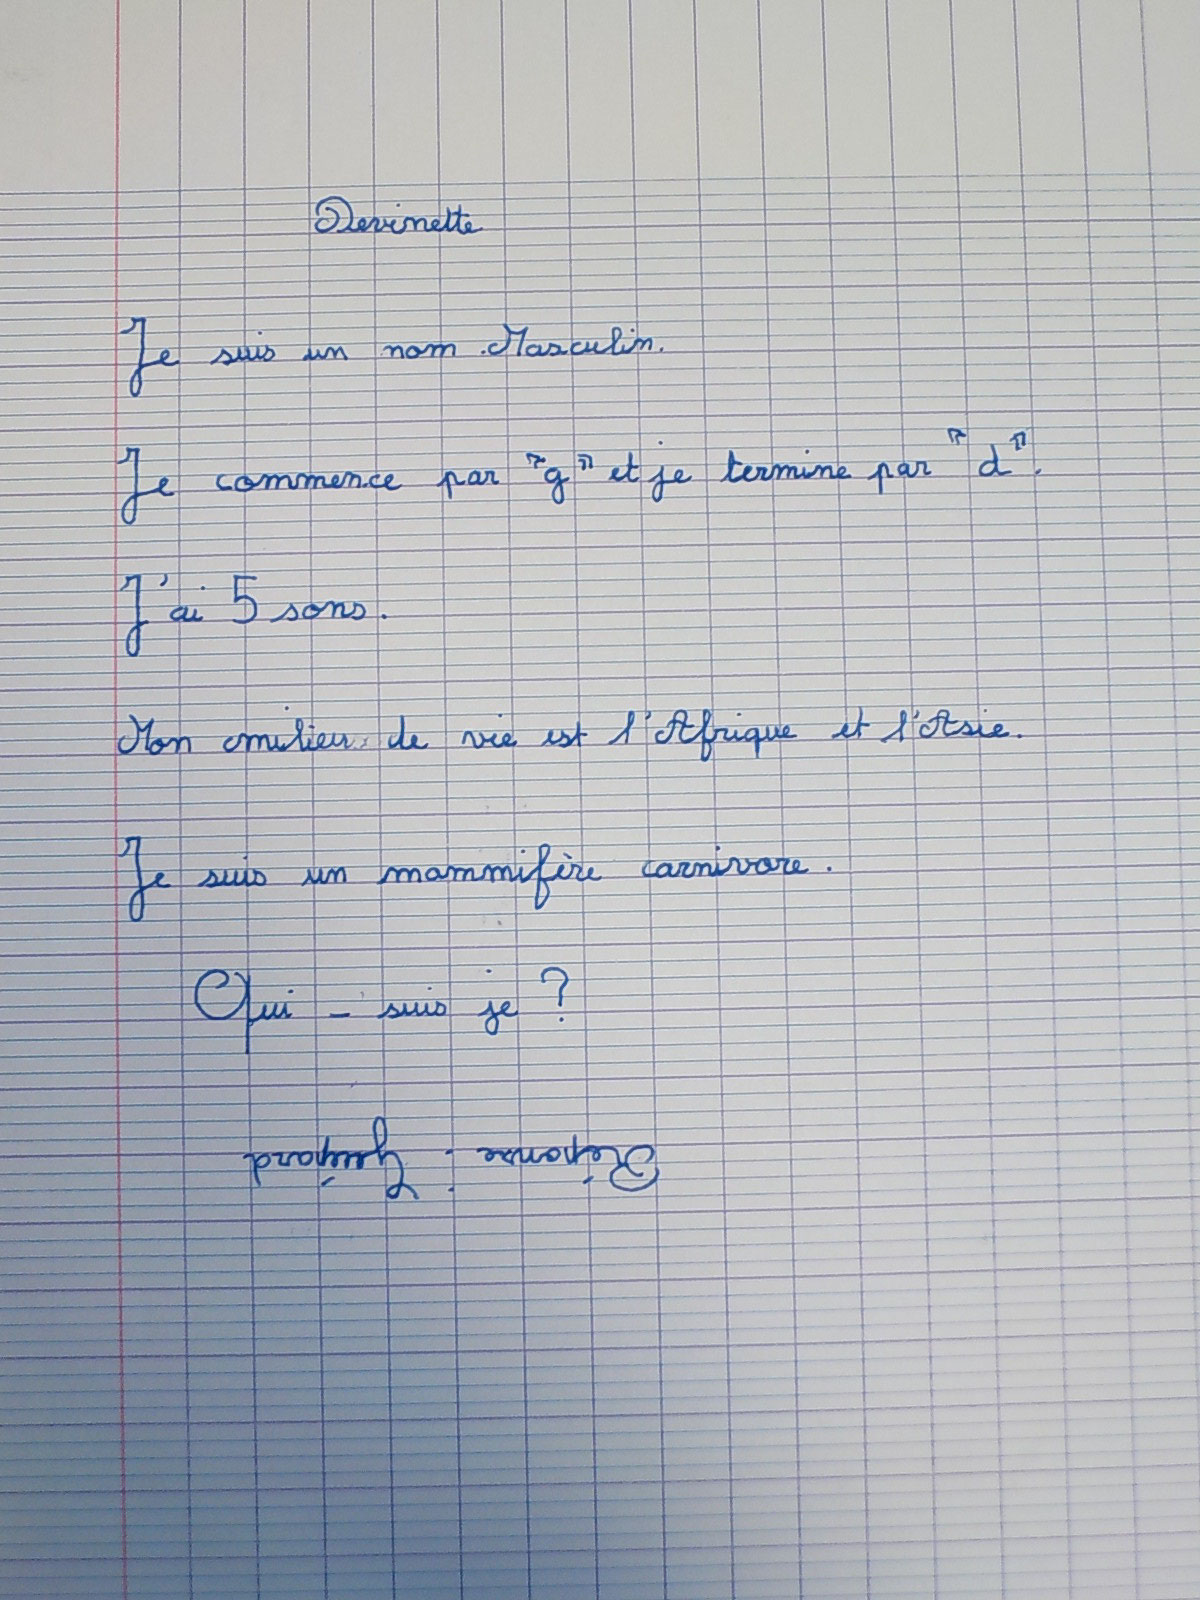 Devinette
Je suis un nom Masculin.
Je commence par "g" et je termine par "d".
J'ai 5 sons.
Mon milieu de vie est l'Afrique et l'Asie.
Je suis un mammifère carnivore.
Qui - suis je ?
Réponse : Guépard